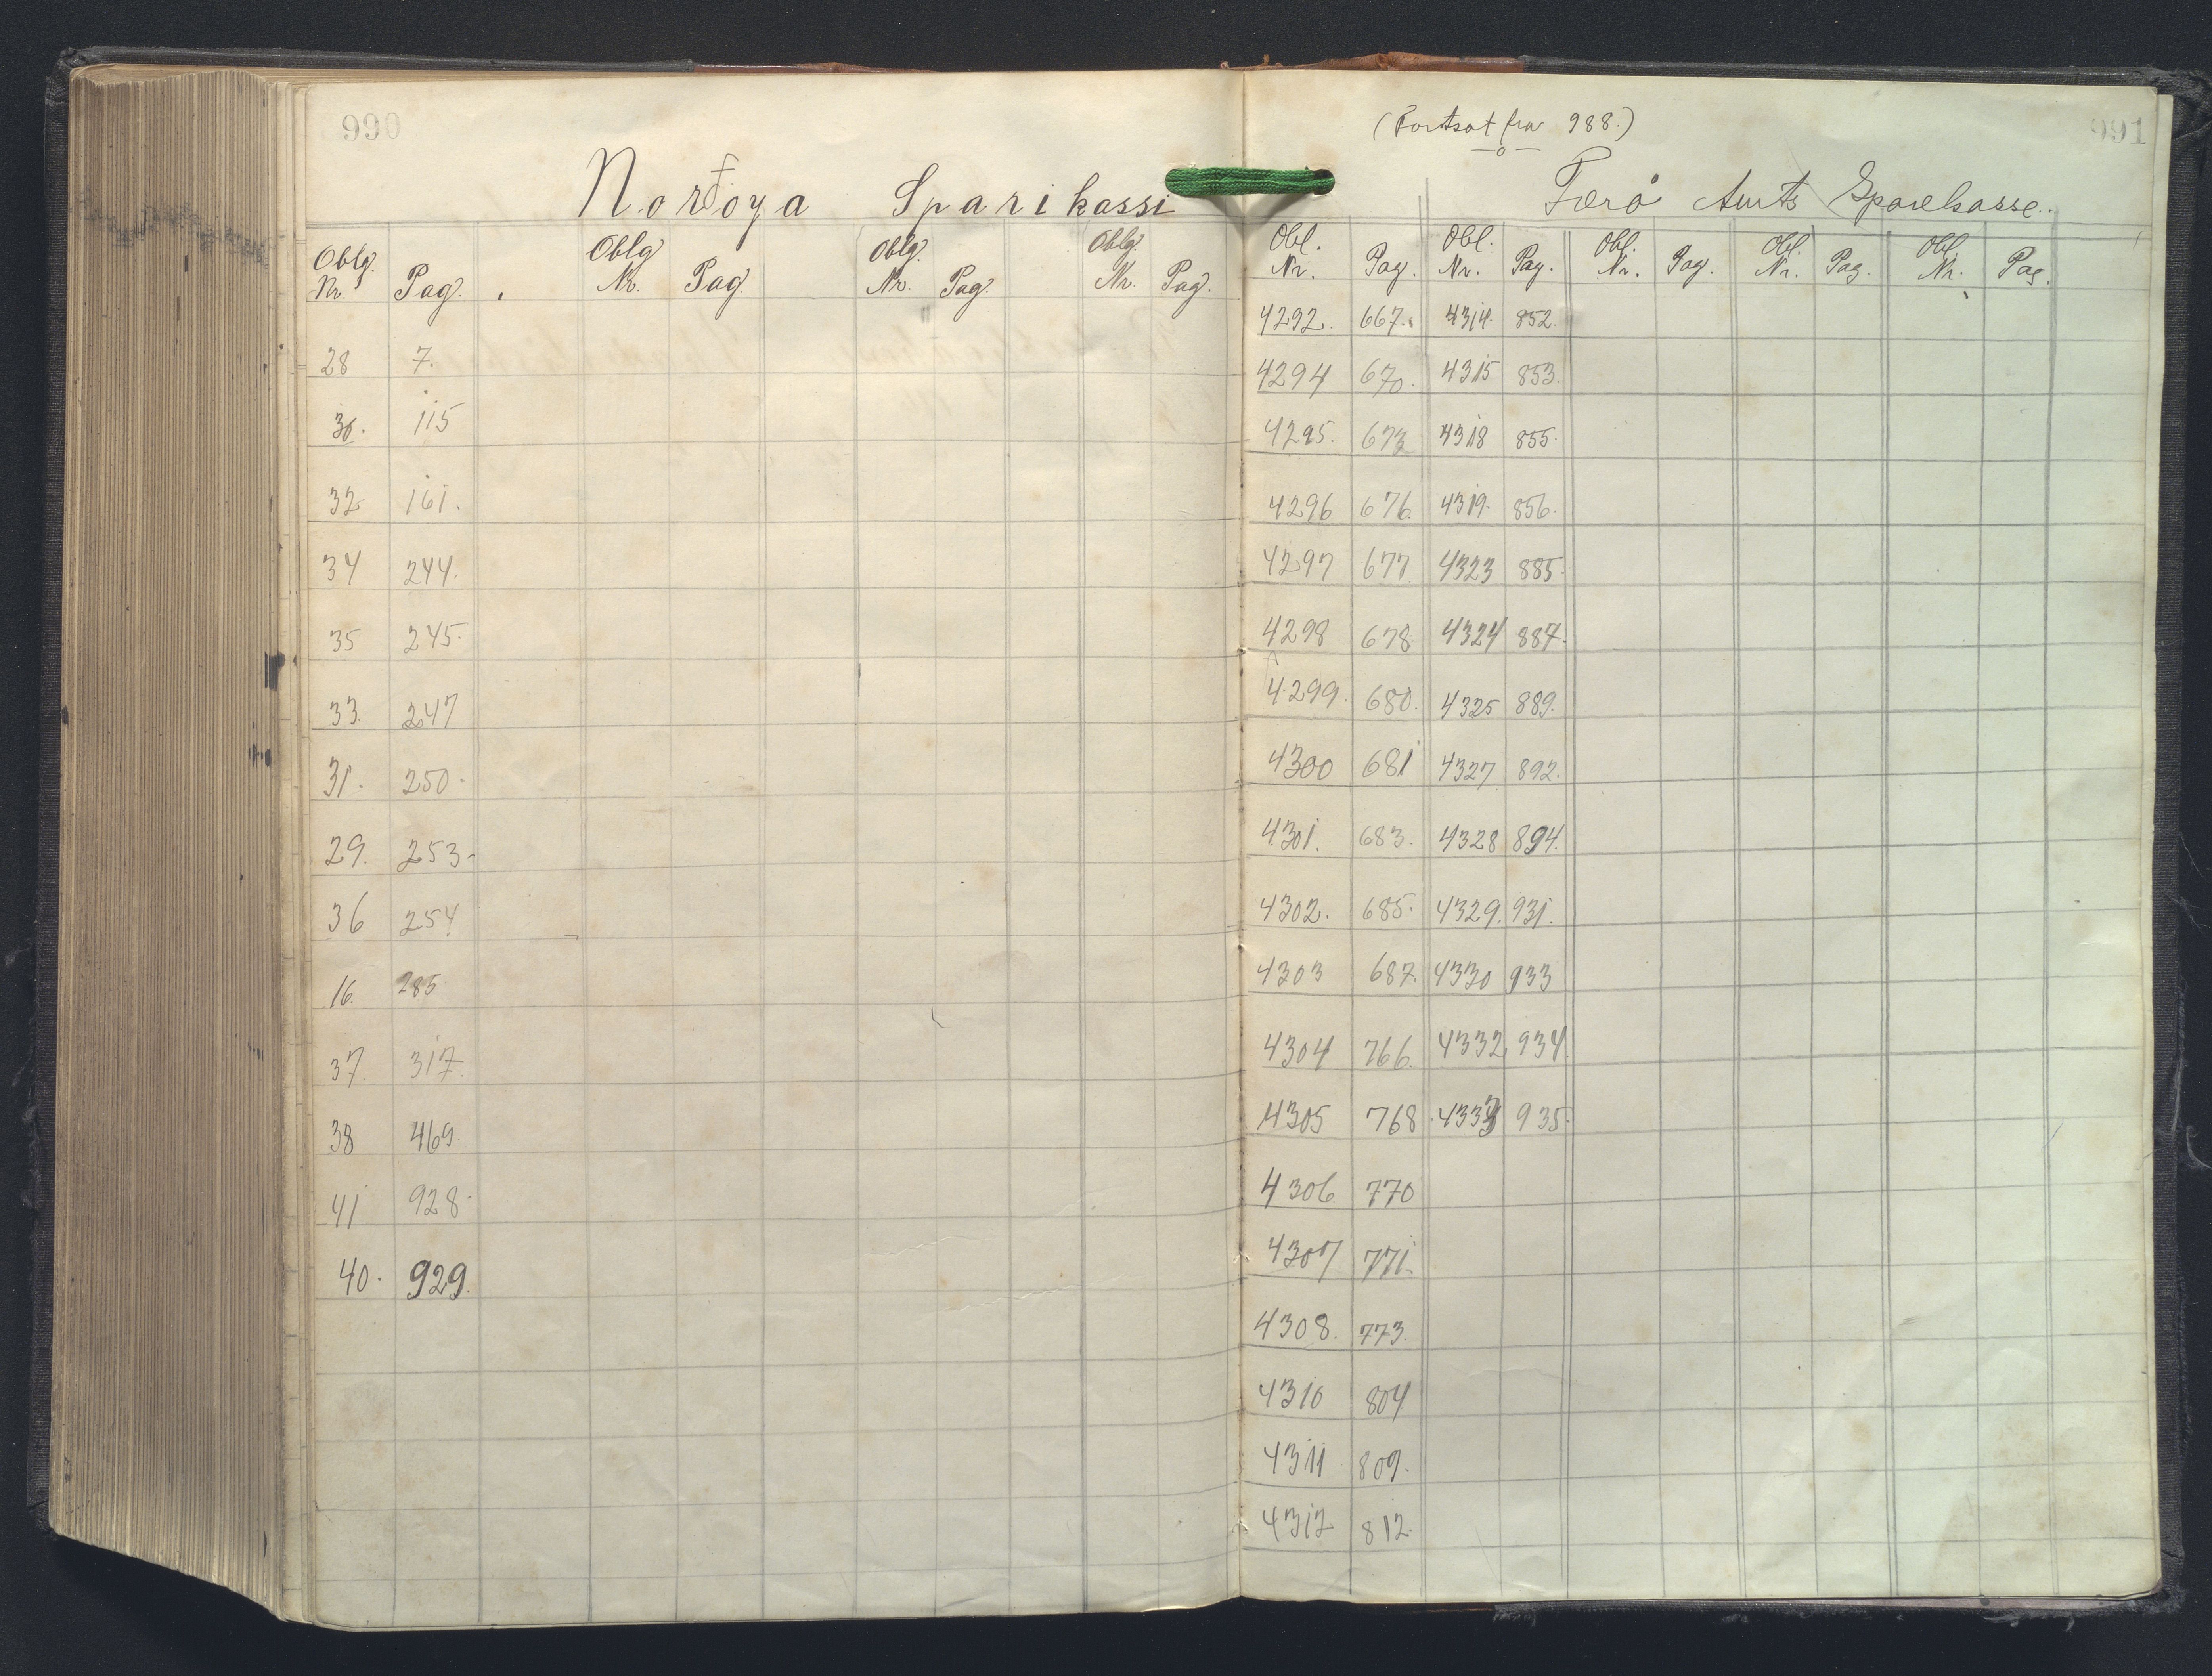 990
Norðoya Sparikassi
Oblg. Nr. Pag. Oblg Nr. Pag. Oblg. Nr. Pag. Oblg. Nr. Pag.
28 7.
30. 115
32 161.
34 244.
35 245.
33. 247
31. 250.
29. 253-
36 254
16. 285
37. 317.
38 469
41 928.
40. 929.
(Fortsat fra 988.)
991
Færø Amts Sparekasse.
Obl. Nr. Pag. Obl. Nr. Pag. Obl. Nr. Pag. Obl. Nr. Pag. Obl. Nr. Pag.
4292. 667. 4314. 852.
4294 670. 4315 853.
4295. 673 4318 855.
4296 676. 4319. 856.
4297 677 4323 885.
4298 678 4324 887.
4299. 680. 4325 889.
4300 681 4327 892.
4301. 683. 4328 894.
4302. 685. 4329. 931.
4303 687. 4330 933
4304 766. 4332 934.
4305 768 935.
4306 770
4307 771.
4308. 773.
4310 804
4311 809.
4312 812.